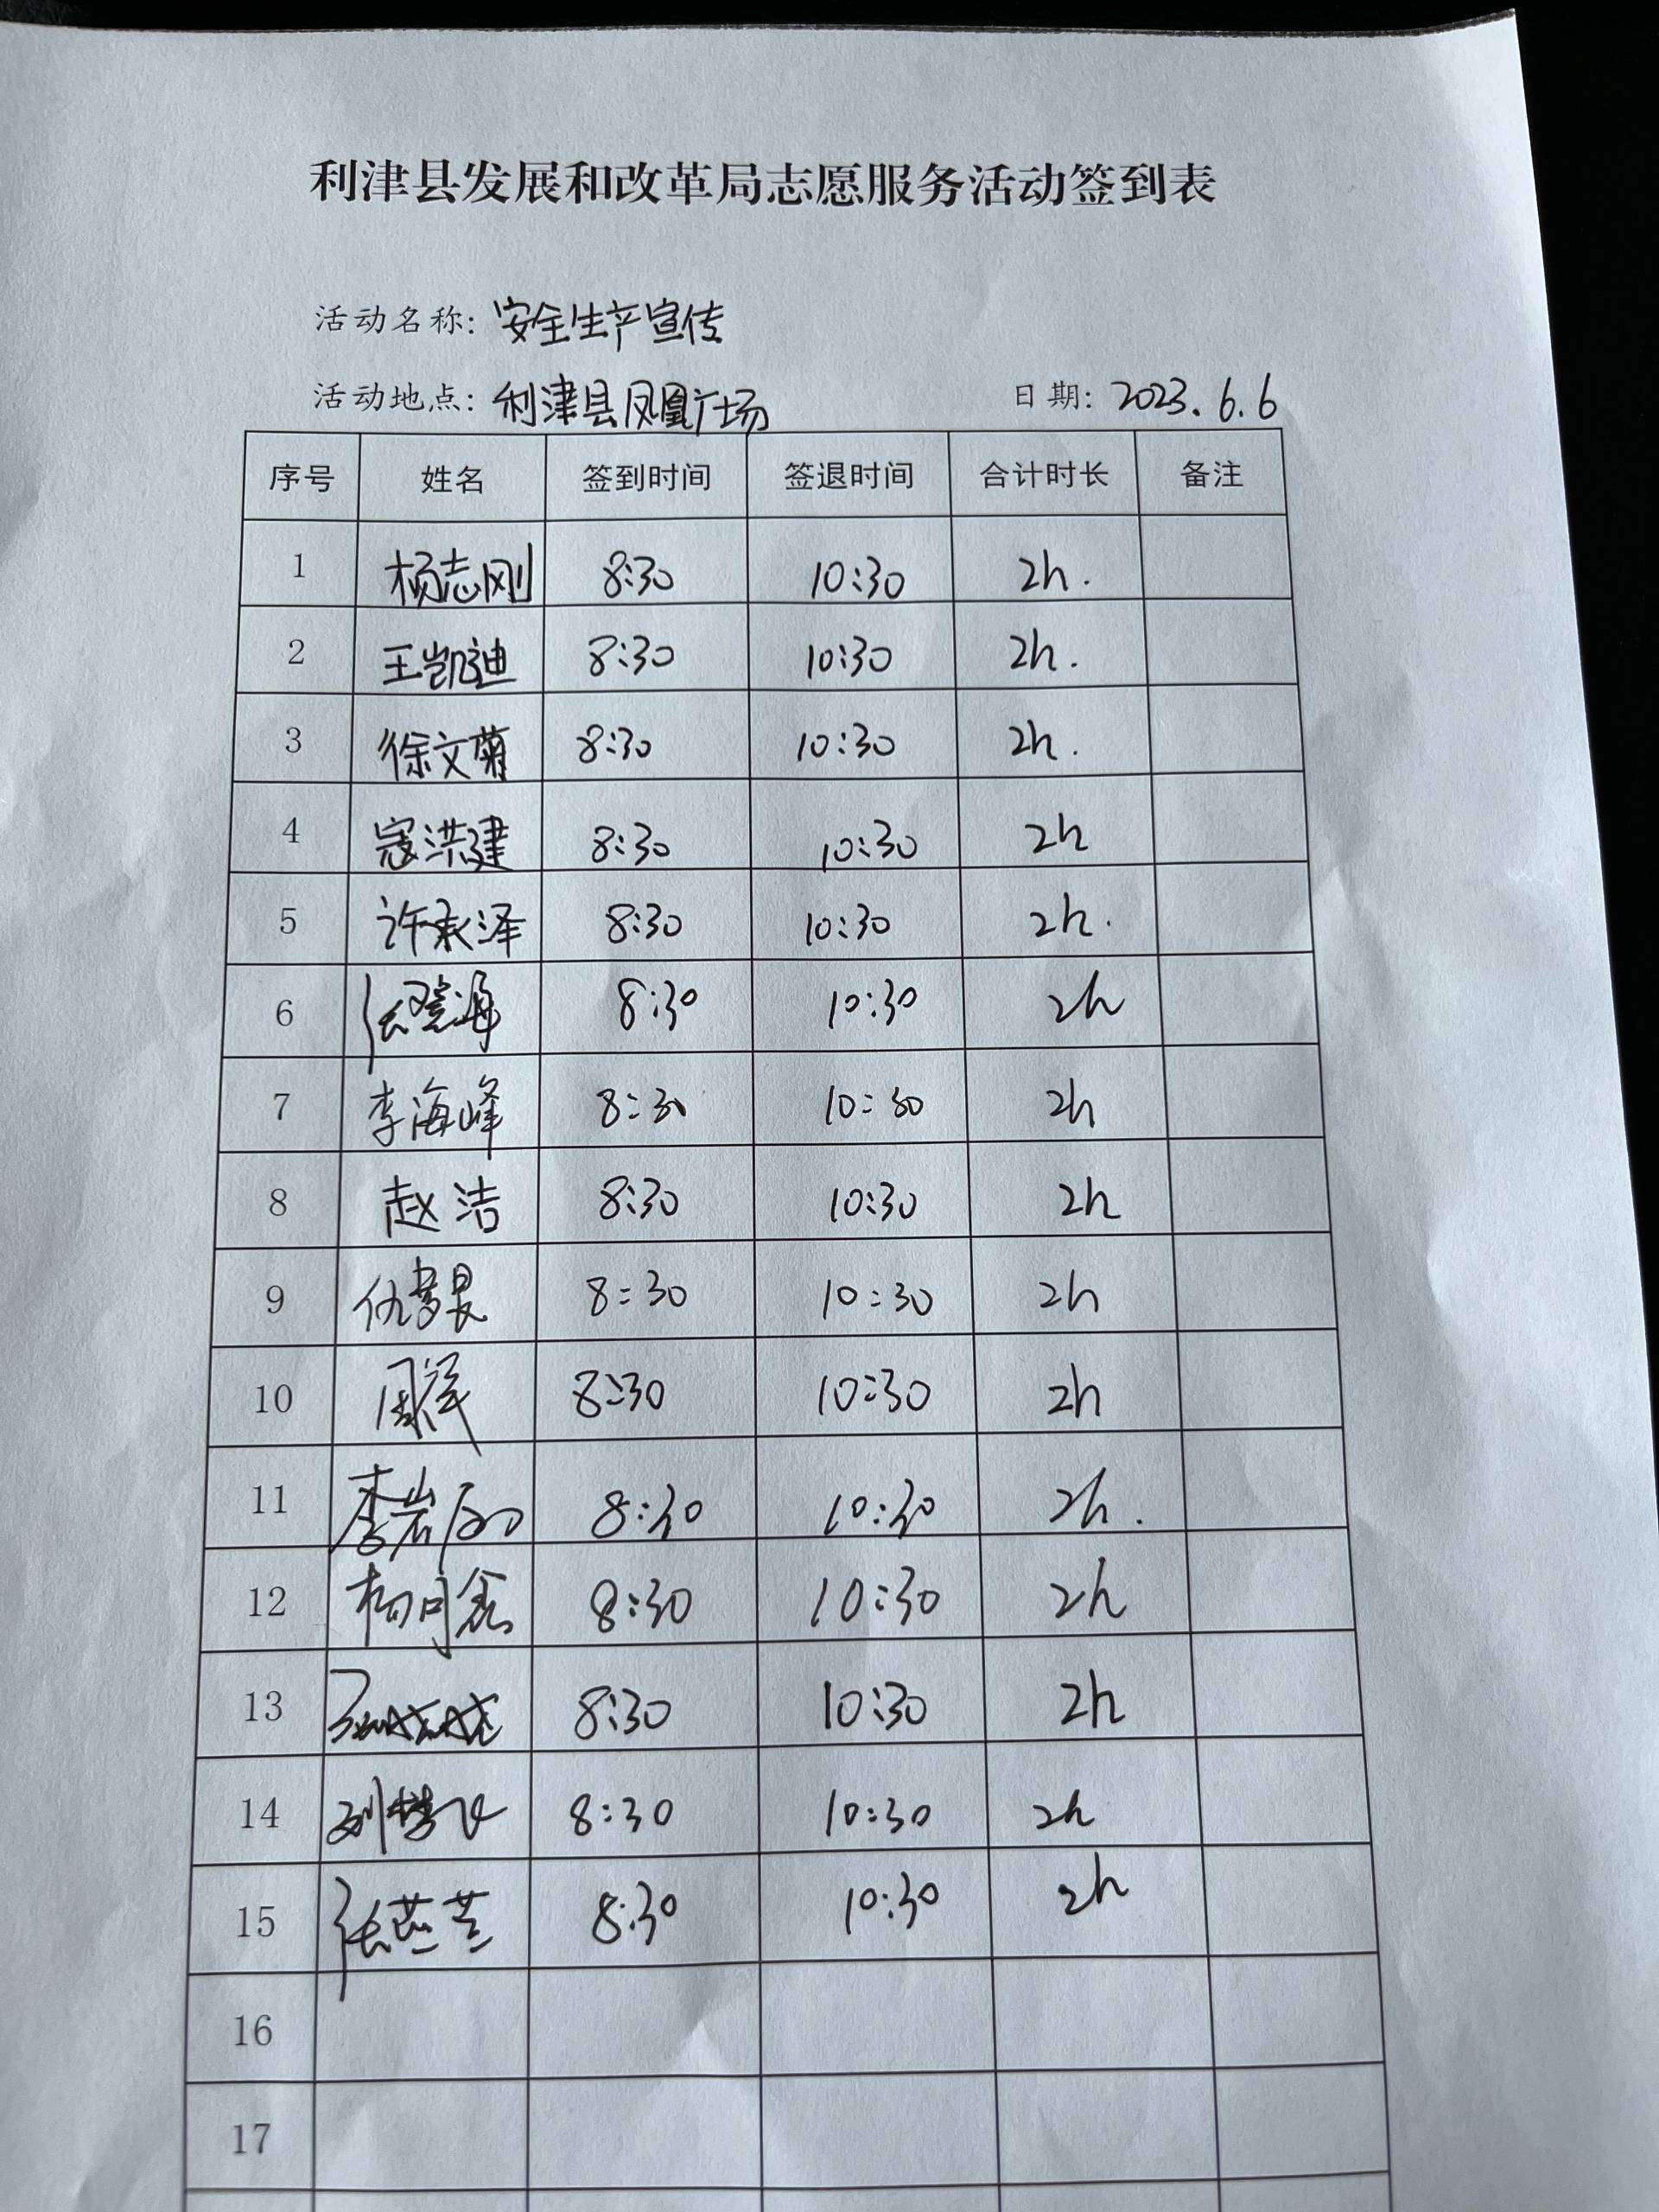 利津县发展和改革局志愿服务活动签到表
活动名称: 安全生产宣传
活动地点: 利津县凤凰广场 日期: 2023.6.6
序号 姓名 签到时间 签退时间 合计时长 备注
1 杨志刚 8:30 10:30 2h.
2 王凯迪 8:30 10:30 2h.
3 徐文菊 8:30 10:30 2h.
4 寇洪建 8:30 10:30 2h
5 许承泽 8:30 10:30 2h.
6 8:30 10:30 2h
7 李海峰 8:30 10:30 2h
8 赵洁 8:30 10:30 2h
9 8:30 10:30 2h
10 周祥 8:30 10:30 2h
11 8:30 10:30 2h.
12 8:30 10:30 2h
13 8:30 10:30 2h
14 8:30 10:30 2h
15 8:30 10:30 2h
16
17